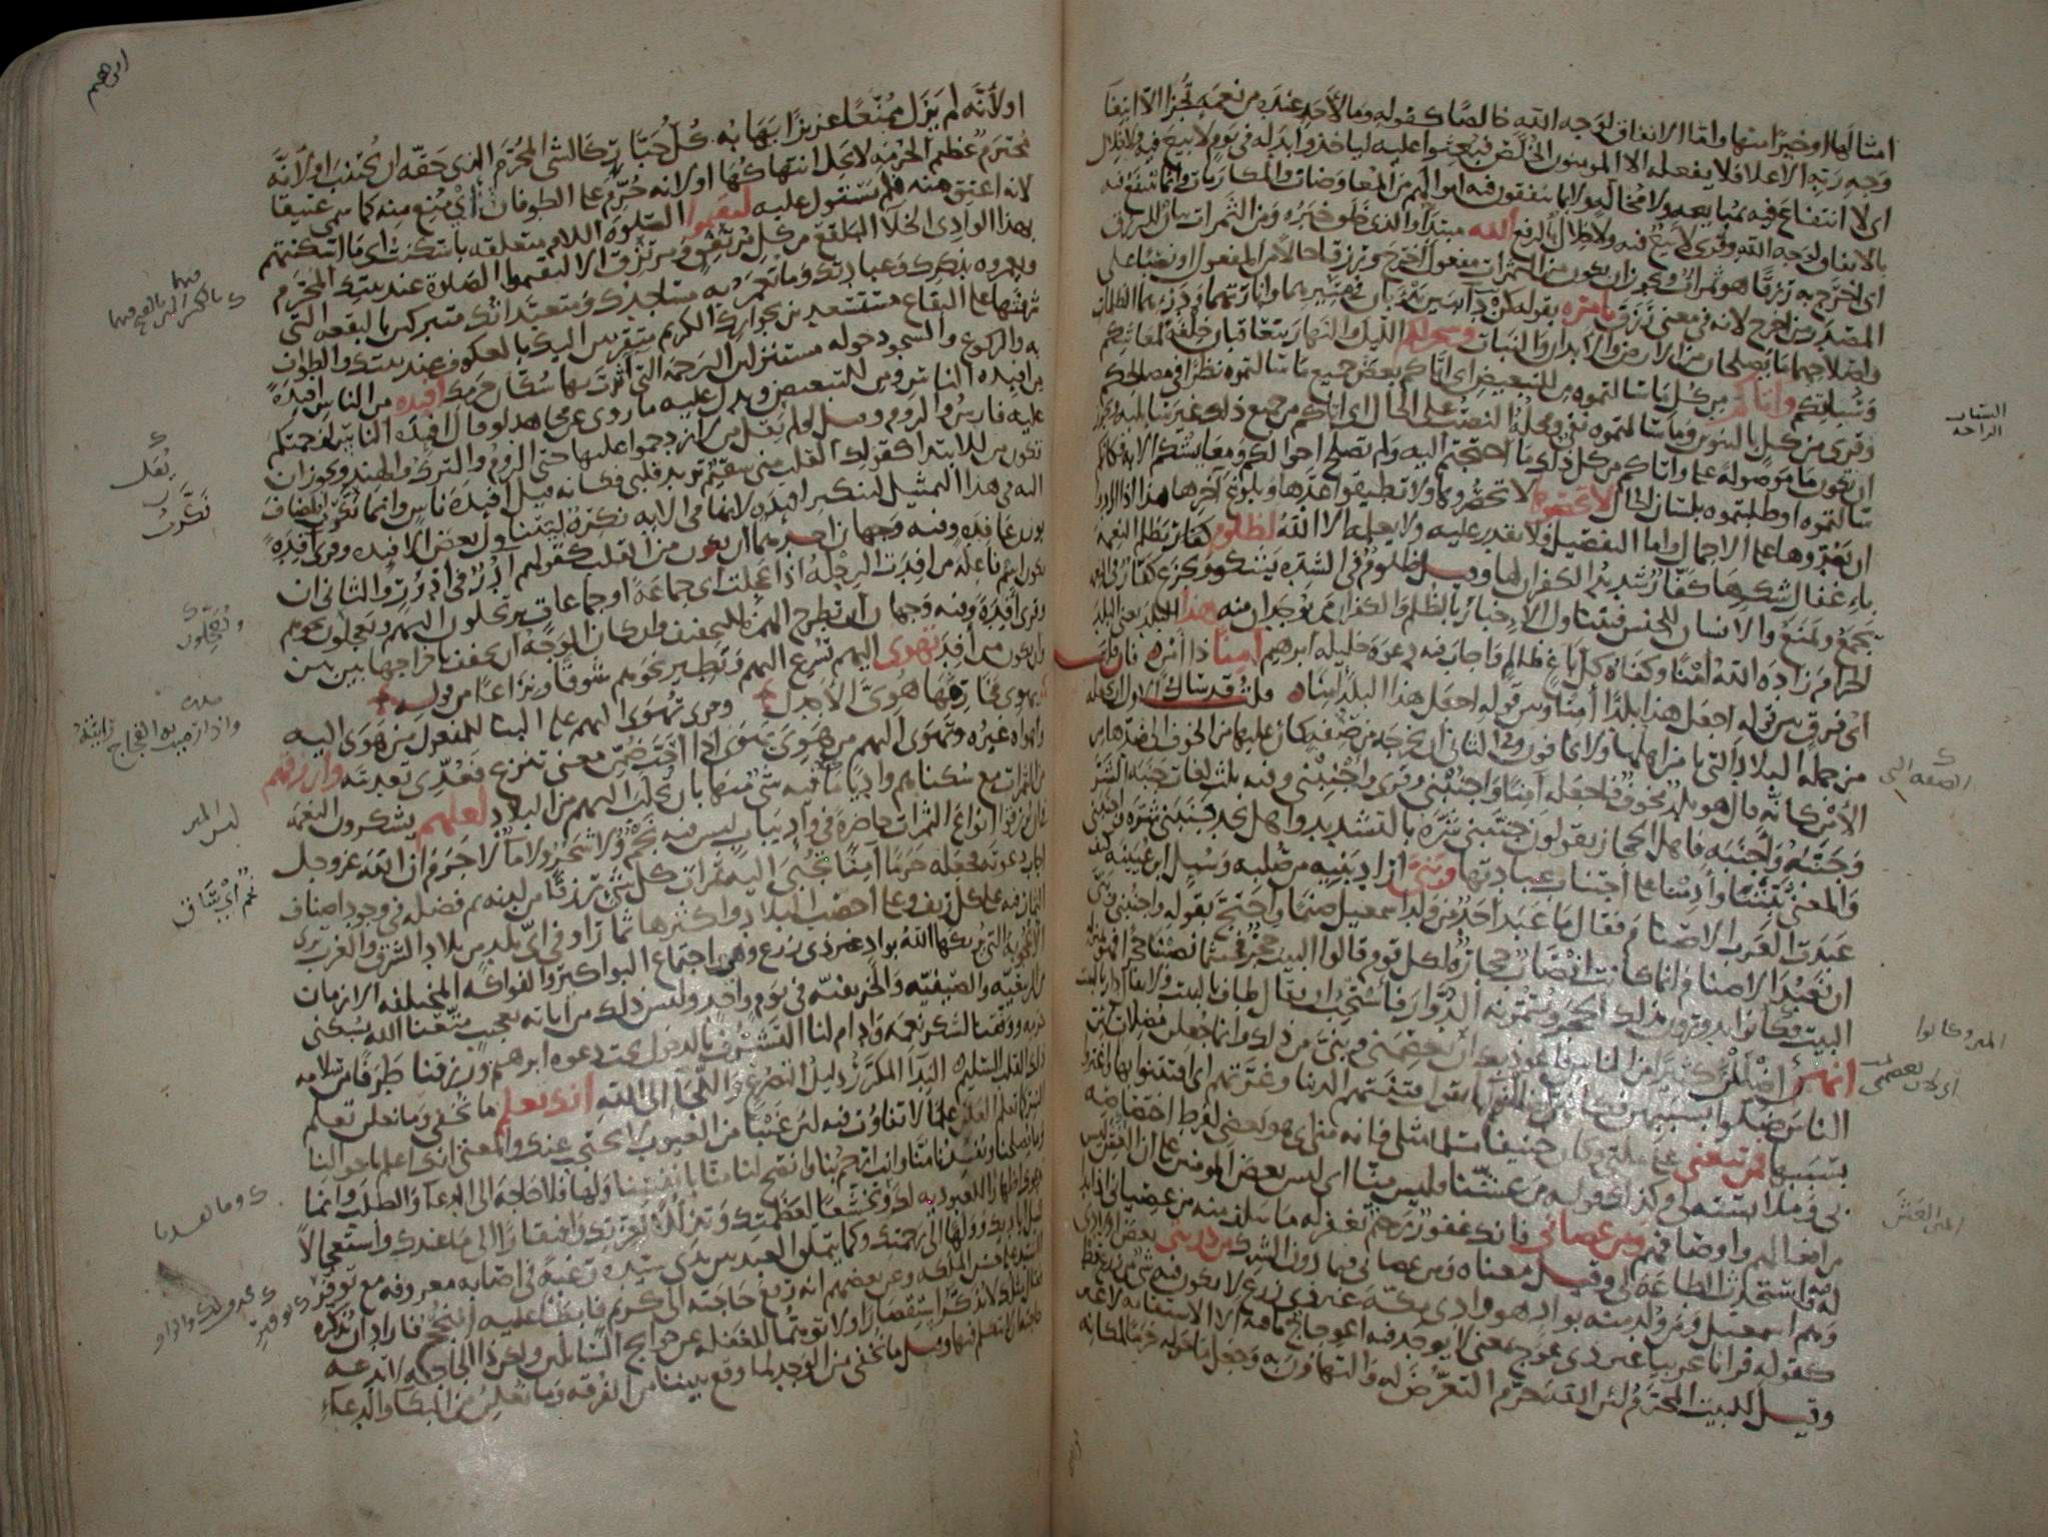 امثالها او خيرًا منها واما الانفاق لوجه الله خالصًا كقوله وما لأحد عنده من نعمة تجزى الا ابتغا
وجه ربه الاعلى فلا يفعله الا المومنون الخلّص فبعثوا عليه لياخذوا بدله في يوم لا بيع فيه ولا خلال
اى لا انتفاع فيه بمبايعه ولا مخالّه ولا بما ينفقون فيه اموالهم من المعاوضات والمكارمات وانما ينتفع فيه
بالانفاق لوجه الله وقرى لا بيع فيه ولا خلال بالرفع الله مبتدأ والذى خلق خبره ومن الثمرات بيان للرزق
اى اخرج به رزقًا هو ثمرات ويجوز ان يكون من الثمرات مفعول اخرج ورزقا حالا من المفعول او نصبًا على
المصدر من اخرج لانه في معنى رزق بامره بقوله كن دايبين يدأبان في سيرهما وانارتهما ودرئهما الظلمات
واصلاحهما ما يصلحان من الارض والابدان والنبات وسخر لكم الليل والنهار يتعاقبان خلفة لمعاشكم
وسباتكم واتاكم من كل ما سالتموه من للتبعيض اى اتاكم بعض جميع ما سالتموه نظرًا في مصالحكم
وقرى من كل بالتنوين وما سالتموه نفى ومحله النصب على الحال اى اتاكم من جميع ذلك غير سائليه ويجوز
ان تكون ما موصولة على واتاكم من كل ذلك ما احتجتم اليه ولم تصلح احوالكم ومعايشكم الا به فكانكم
سالتموه او طلبتموه بلسان الحال لا تحصوها لا تحصروها ولا تطيقوا عدّها وبلوغ آخرها هذا اذا ارادوا
ان يعدّوها على الاجمال واما التفصيل فلا يقدر عليه ولا يعلمه الا الله لظلوم كفار يظلم النعمة
باغفال شكرها كفّار شديد الكفران لها وقيل ظلوم في الشدة يشكو ويجزع كفار في النعمة
يجمع ويمنع والانسان للجنس فيتناول الاخبار بالظلم والكفران من يوجدان منه هذا البلد يعنى البلد
الحرام زاده الله امنًا وكفاه كل باغ ظالم واجاب فيه دعوة خليله ابرهيم آمنًا ذا امن فان قلت
اى فرق بين قوله اجعل هذا بلدًا آمنًا وبين قوله اجعل هذا البلد آمنًا قلت قد سال في الاول ان يجعله
من جملة البلاد التى يامن اهلها ولا يخافون وفي الثانى ان يخرجه من صفة كان عليها من الخوف الى ضدها من
الامن كانّه قال هو بلد مخوف فاجعله آمنًا واجنبنى وقرى واجنبنى وفيه ثلث لغات جنبه الشرّ
وجنّبه واجنبه فاهل الحجاز يقولون جنّبنى شرّه بالتشديد واهل نجد جنبنى شرّه واجنبنى
والمعنى ثبّتنا وأدمنا على اجتناب عبادتها وبنيّ اراد بنيه من صلبه وسُيل ابن عيينه كيف
عبدت العرب الاصنام فقال ما عبد احد من ولد اسمعيل صنما واحتج بقوله واجنبنى وبنىّ
ان نعبد الاصنام انما كانت انصاب حجارة لكل قوم قالوا البيت حجر فحيثما نصبنا حجرًا فهو بمنزلة
البيت فكانوا يدورون بذلك الحجر ويسمّونه الدوّار فاستحب ان يقال طاف بالبيت ولا يقال دار بالبيت
انهنّ اضللن كثيرًا من الناس فاعوذ بك ان تعصمنى وبنىّ من ذلك وانما جعلن مضلات لان
الناس ضلّوا بسببهن فكانهن اضللنهم كما تقول فتنتهم الدنيا وغرّتهم اى افتتنوا بها واغترّوا
بسببها فمن تبعنى على ملتى وكان حنيفًا مسلمًا مثلى فانه منى اى هو بعضى لفرط اختصاصه
بى وملابسته لى وكذلك قوله من غشّنا فليس منّا اى ليس بعض المومنين على ان الغش ليس
من افعالهم واوصافهم ومن عصانى فانك غفور رحيم تغفر له ما سلف منه من عصيانى اذا بدا
له فيه واستحدث الطاعة لى وقيل معناه ومن عصانى فيما دون الشرك من ذريتى بعض اولادى
وهم اسمعيل ومن ولد منه بواد هو وادى مكّة غير ذى زرع لا يكون فيه شى من زرع قط
كقوله قرانا عربيًا غير ذى عوج بمعنى لا يوجد فيه اعوجاج ما فيه الا الاستقامة لا غير
وقيل للبيت المحرّم لان الله حرّم التعرّض له والتهاون به وجعل ما حوله حرمًا لمكانه
السبات
الراحه
الصفه التى
الحجر وكانوا
اى لان تعصمنى
المن الغش
ابرهيم
او لأنّه لم يزل ممنّعًا عزيزًا يهابه كل جبّار كالشى المحرّم الذى حقّه ان يجتنب او لأنّه
محترم عظيم الحرمة لا يحل انتهاكها او لانه حُرّم على الطوفان اى مُنع منه كما سمى عتيقا
لانه اعتق منه فلم يستول عليه ليقيموا الصلوة اللام متعلقه باسكنت اى ما اسكنتهم
بهذا الوادى الخلاء البلقع من كل مرتفق ومرتزق الا ليقيموا الصلاة عند بيتك المحرّم
ويعمروه بذكرك وعبادتك وما تعمر به مساجدك ومتعبّداتك متبركين بالبقعه التى
شرّفتها على البقاع مستسعدين بجوارك الكريم متقربين اليك بالعكوف عند بيتك والطواف
به والركوع والسجود حوله مستنزلين الرحمة التى آثرت بها سكّان حرمك افيدة من الناس افيدةً
من افيدة الناس ومن للتبعيض ويدل عليه ما روى عن مجاهد لو قال افيدة الناس لزحمتكم
عليه فارس والروم وقيل لو لم يقل من لازدحموا عليها حتى الروم والترك والهند ويجوز ان
تكون من للابتدا كقولك القلب منى سقيم تريد قلبى فكانه قيل افيدة ناس وانما نكّرت المضاف
اليه في هذا التمثيل لتنكير افيدة لانها في الايه نكرة ليتناول بعض الافيده وقرى آفدةً
بوزن عافدة وفيه وجهان احدهما ان يكون من القلب كقولهم آدر في ادؤر والثانى ان
يكون اسم فاعلة من افدت الرحلة اذا عجلت اى جماعة او جماعات يرتحلون اليهم ويعجلون نحوهم
وقرى أفدة وفيه وجهان ان تطرح الهمزة للتخفيف وان كان الوجه ان تخفف باخراجها بين بين
وان يكون من أفد تهوى اليهم تسرع اليهم وتطير نحوهم شوقًا ونزاعًا من قوله
يهوى مخارمها هوىّ الأجدل وقرى تهوى اليهم على البنا للمفعول من هوى اليه
واهواه غيره وتهوى اليهم من هوى يهوى اذا احبّ ضمّن معنى تنزع فعُدّى تعديته وارزقهم
من الثمرات مع سكناهم واديًا ما فيه شى منها بان تجلب اليهم من البلاد لعلهم يشكرون النعمة
فى ان يرزقوا انواع الثمرات حاضرة في واد يباب ليس فيه نجم ولا شجر ولا ماء لا جرم ان الله عزوجل
اجاب دعوته فجعله حرمًا آمنًا تجبى اليه ثمرات كل شى رزقًا من لدنه ثم فضله في وجود اصناف
الثمار فيه على كل ريف وعلى اخصب البلاد واكثرها ثمارًا وفي اىّ بلد من بلاد الشرق والغرب ترى
الاعجوبة التى يريكها الله بواد غير ذى زرع وهى اجتماع البواكير والفواكه المختلفه الازمان
من الربيعيّه والصيفيّه والخريفيّه في يوم واحد وليس ذلك من آياته بعجيب متّعنا الله بسكنى
حرمه ووفقنا لشكر نعمه وادام لنا التشرّف بالدخول تحت دعوة ابرهيم ورزقنا طرفًا من سلامة
ذلك القلب السليم الندآ المكرّر دليل التضرّع واللّجا الى الله انك تعلم ما نخفى وما نعلن تعلم
السرّ كما تعلم العلن علمًا لا تفاوت فيه لان غيبًا من الغيوب لا يحتجب عنك والمعنى انك اعلم باحوالنا
وما يصلحنا ويفسدنا منّا وانت ارحم بنا وانصح لنا منّا بانفسنا ولها فلا حاجة الى الدعآ والطلب وانما
ندعوك اظهارًا للعبودية لك وتخشّعًا لعظمتك وتذلّلًا لعزتك وافتقارًا الى ما عندك واستعجالًا
لنيل اياديك وولهًا الى رحمتك وكما يتملّق العبد بين يدى سيّده رغبةً في اصابة معروفه مع توفير
السيد على حسن الملكة وعن بعضهم انه رفع حاجته الى كريم فابطأ عليه النجح فاراد ان يذكره
فقال مثلك لا يذكّر استقصارًا ولا توهّمًا للغفله عن حوايج السّائلين ولكن ذا الحاجة لا تدعه
حاجته ان لا يتكلم فيها وقيل ما نخفى من الوجد لما وقع بيننا من الفرقه وما نعلن من البكا والدعاء